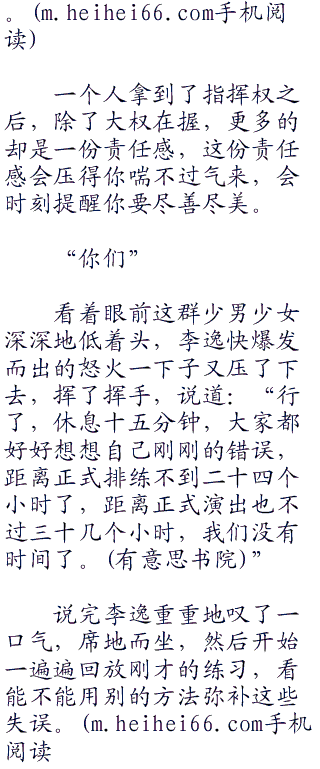 。(m.heihei66.com手机阅
读)
一个人拿到了指挥权之
后，除了大权在握，更多的
却是一份责任感，这份责任
感会压得你喘不过气来，会
时刻提醒你要尽善尽美。
“你们”
看着眼前这群少男少女
深深地低着头，李逸快爆发
而出的怒火一下子又压了下
去，挥了挥手，说道：“行
了，休息十五分钟，大家都
好好想想自己刚刚的错误，
距离正式排练不到二十四个
小时了，距离正式演出也不
过三十几个小时，我们没有
时间了。(有意思书院)”
说完李逸重重地叹了一
口气，席地而坐，然后开始
一遍遍回放刚才的练习，看
能不能用别的方法弥补这些
失误。(m.heihei66.com手机
阅读